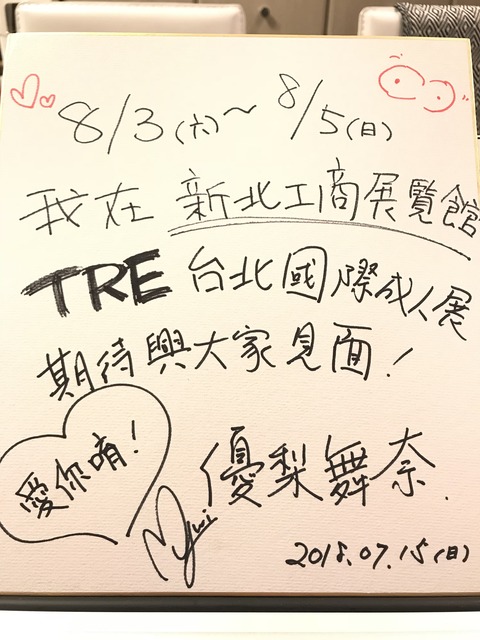 8/3(六)~8/5(日)
我在 新北工商展覽館
TRE 台北國際成人展
期待與大家見面!
愛你唷!
優梨舞奈.
2018.07.15(日)